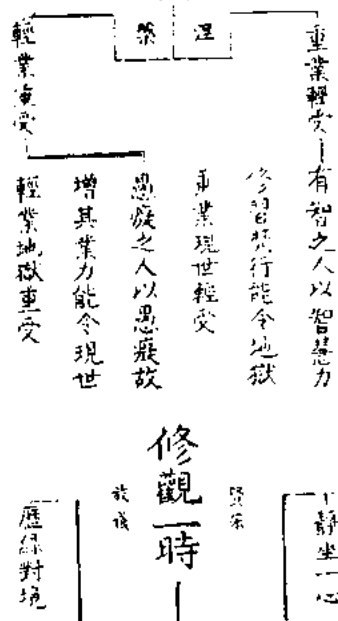 涅槃
重業輕受
有智之人以智慧力
修習梵行能令地獄
重業現世輕受
輕業重受
愚癡之人以愚癡故
增其業力能令現世
輕業地獄重受
修觀一時
靜坐一心
歷緣對境